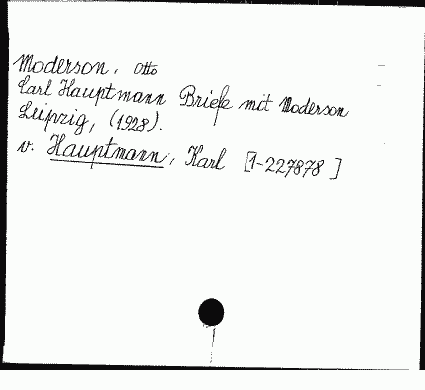 Moderson, Otto
Carl Hauptmann Briefe mit Moderson
Leipzig, (1928).
v. Hauptmann, Karl [1-227878]